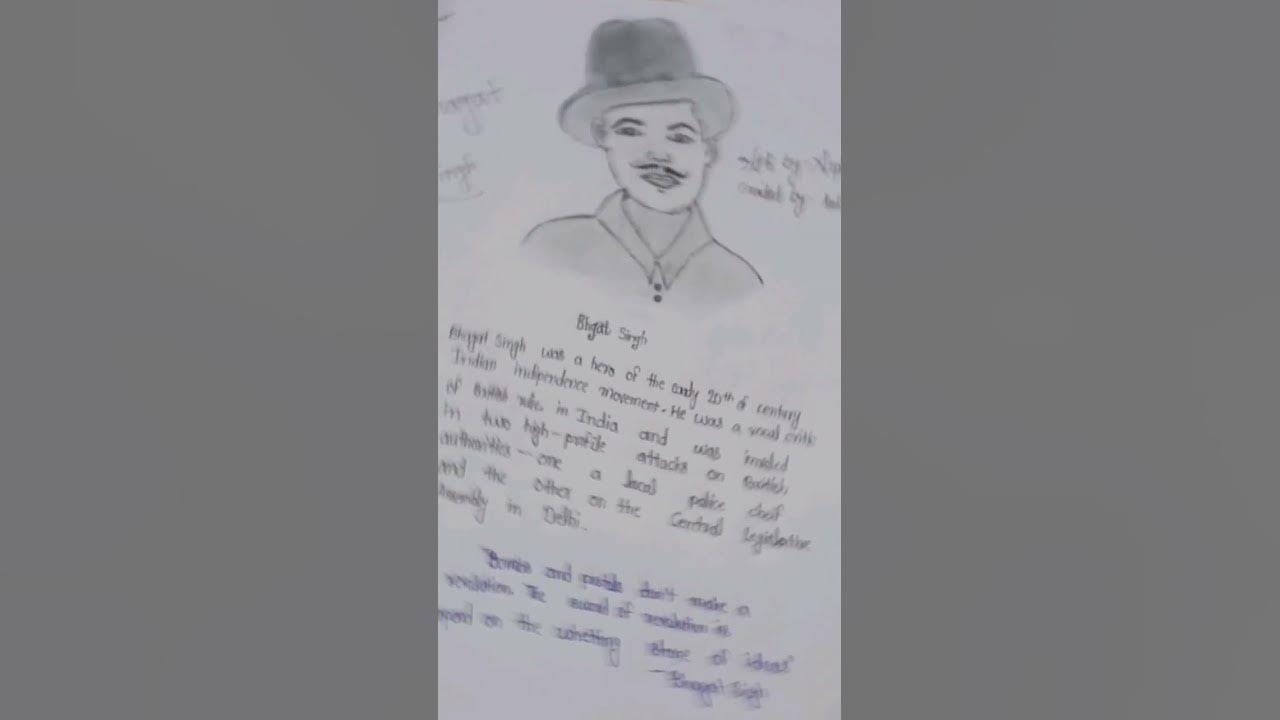 Bhgat Singh
Bhagat Singh was a hero of the early 20th of century
Indian independence movement. He was a vocal critic
of British rule in India and was involved
in two high-profile attacks on British
authorities - one a local police chief
and the other on the Central legislative
Assembly in Delhi.
Bombs and pistols don't make a
revolution. The sword of revolution is
on the whetting stone of ideas
- Bhagat Singh